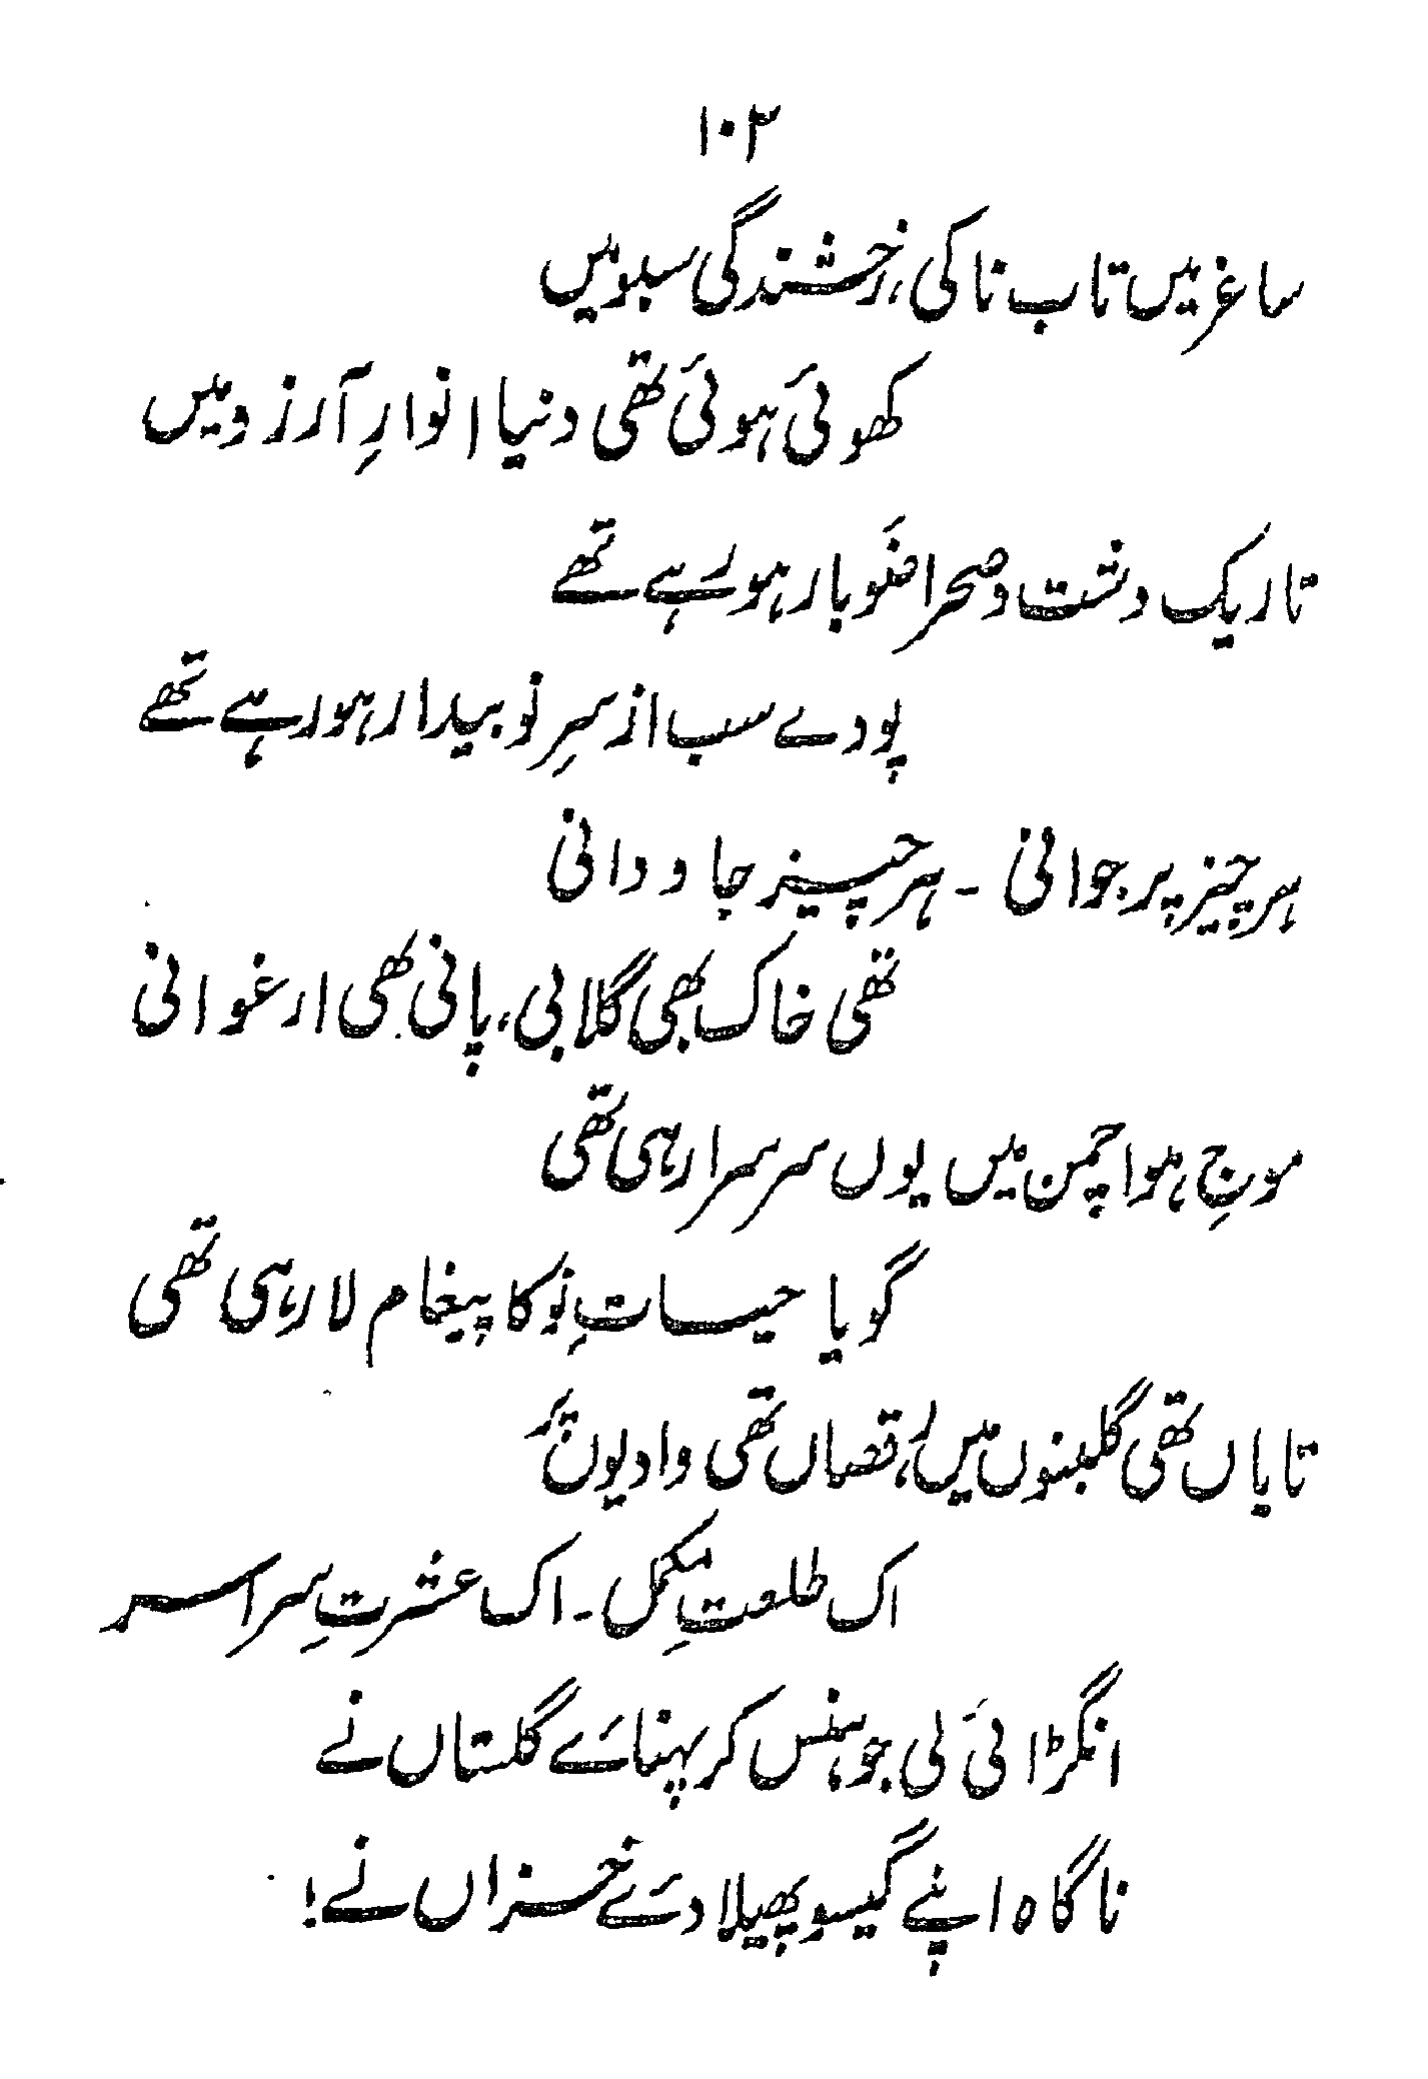 ۱۰۳
ساغر میں تاب ناکی، رخشندگی سبو میں
کھوئی ہوئی تھی دنیا انوارِ آرزو میں
تاریک دشت و صحرا ضَو بار ہو رہے تھے
پودے سب از سرِ نو بیدار ہو رہے تھے
ہر چیز پر جوانی - ہر چیز جاودانی
تھی خاک بھی گلابی، پانی بھی ارغوانی
موجِ ہوا چمن میں یوں سرسرا رہی تھی
گویا حیاتِ نَو کا پیغام لا رہی تھی
تاباں تھی گلبنوں میں، رقصاں تھی وادیوں پر
اک طلعتِ مکمل - اک عشرتِ سراسر
انگڑائی لی جو ہنس کر پہنائے گلستاں نے
ناگاہ اپنے گیسو پھیلا دئے خزاں نے!